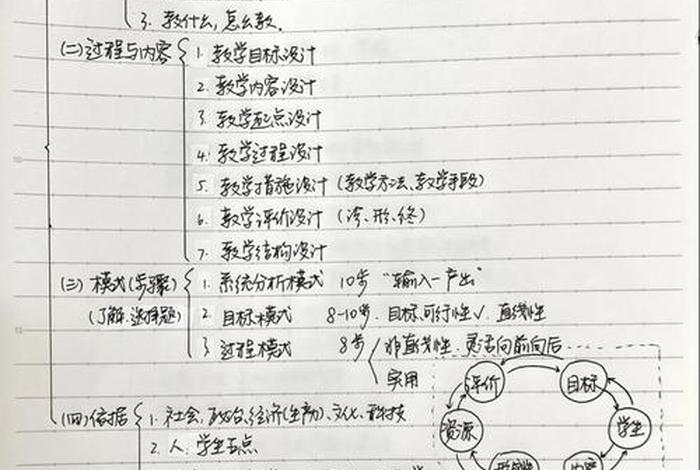 3. 教什么,怎么教.
(二)过程与内容
1. 教学目标设计
2. 教学内容设计
3. 教学起点设计
4. 教学过程设计
5. 教学措施设计 (教学方法、教学手段)
6. 教学评价设计 (诊、形、终)
7. 教学结构设计
(三) 模式(步骤)
(了解.选择题)
1. 系统分析模式 10步 "输入-产出"
2. 目标模式 8-10步. 目标.可行性√. 直线性
3. 过程模式 8步
非直线性. 灵活向前向后
实用
评价
目标
资源
学生
内容
(四)依据
1. 社会、政治、经济(生产)、文化、科技
2. 人:学生五点